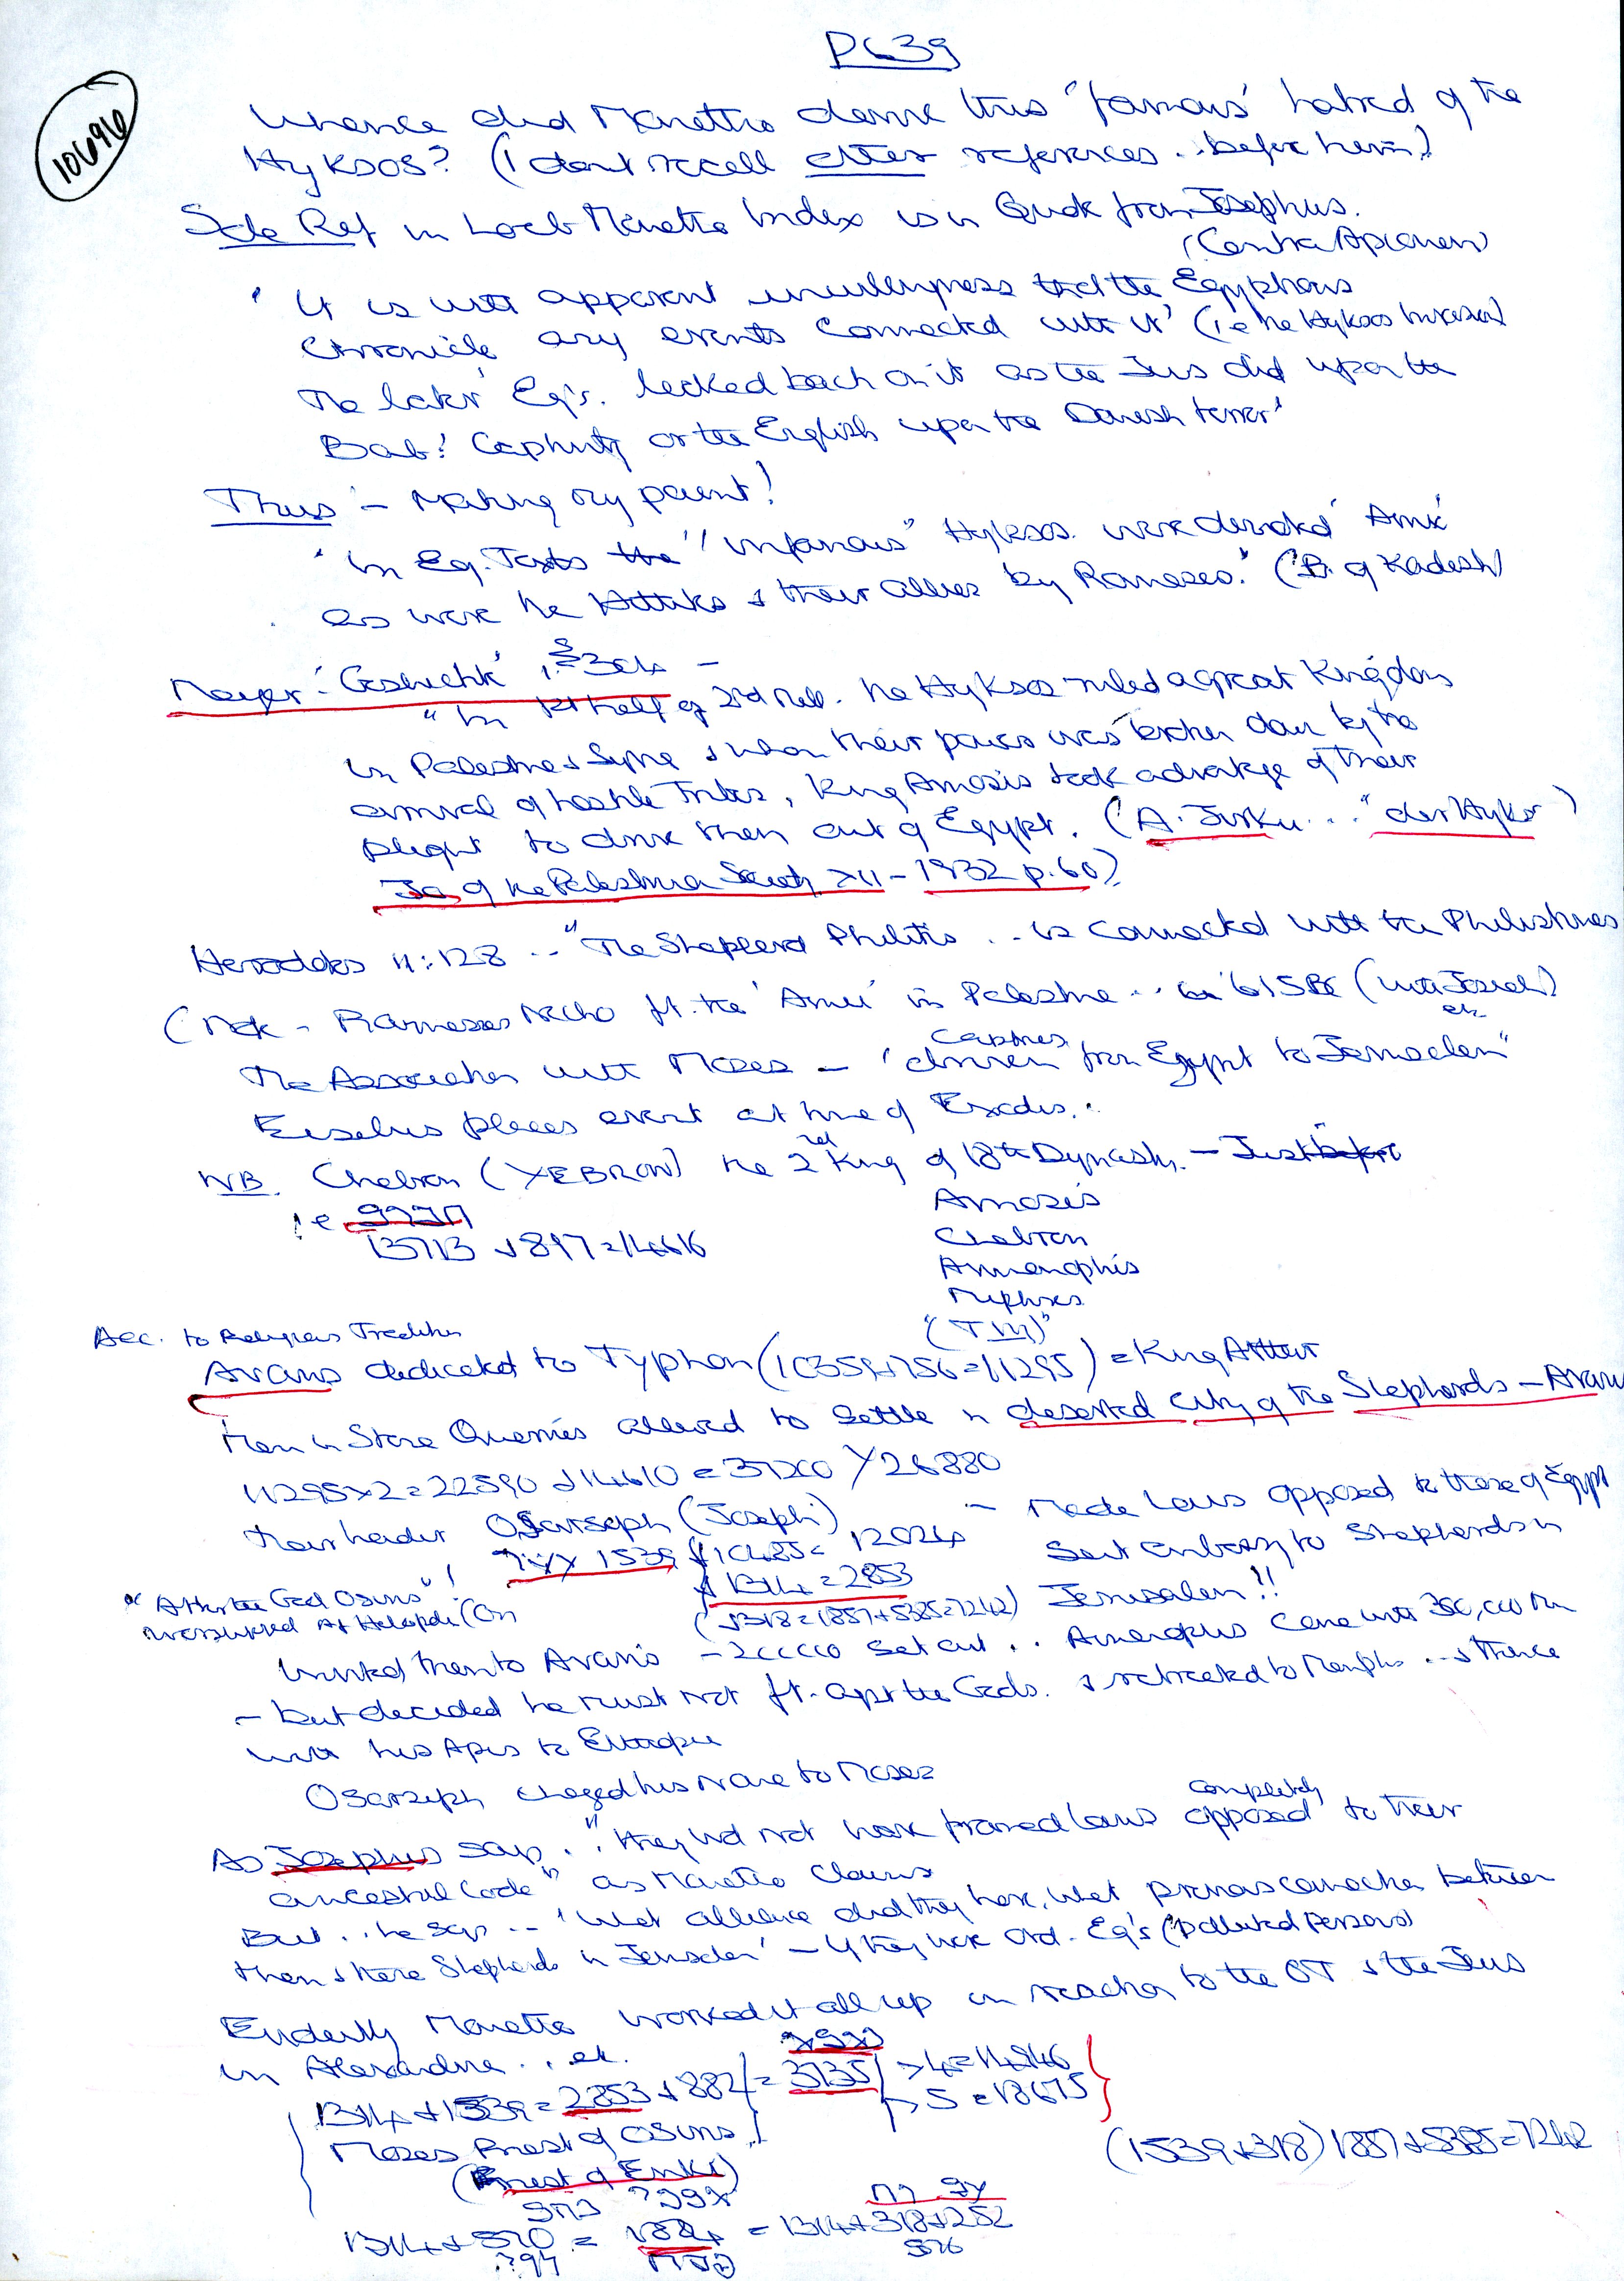 PG39
106946
Whence did Manetho derive this 'famous' hatred of the
Hyksos? (I dont recall other references .. before him)
Sole Ref in Loeb Manetho Index is in Quote from Josephus.
(Contra Apionem)
' It is with apparent unwillingness that the Egyptians
Chronicle any events connected with it' (i.e the Hyksos Invasion)
The later Eg's. looked back on it as the Jews did upon the
Bab! Captivity or the English upon the Danish terror'
Thus - Making my point!
'In Eg. Texts the "infamous" Hyksos. were denoted 'Amu'
as were the Hittites & their allies by Rameses.' (B. of Kadesh)
Meyer 'Geschichte',
"In 1st half of 2nd Mill. the Hyksos ruled a great Kingdom
in Palestine & Syria & when their power was broken down by the
arrival of hostile Tribes, King Amosis took advantage of their
plight to drive them out of Egypt. (A. Jirku ... "der Hyksos")
Jo. of the Palestine Society XII - 1932 p.60)
Herodotos 11:128 .. "The Shepherd Philitis ... is connected with the Philistines
(Note - Rameses Necho ft. the 'Amu' in Palestine .. in 615BC (with Josiah)
etc
Captives
The Association with Moses - 'driven from Egypt to Jerusalem"
Eusebius places event at time of Exodus..
NB. Chebron (XEBRON) the 2nd King of 18th Dynasty. - Just before
Amosis
i.e
Chebron
13713 + 897 = 14616
Amenophis
Mephres
"(T III)"
Acc. to Religious Tradition
Avaris dedicated to Typhon (10359+756=11295) = King Arthur
Men in Stone Quarries allowed to settle in deserted City of the Shepherds - Avaris
11295x2=22590 + 14610 = 37200 / 26880
Their leader Osarseph (Joseph) - Made Laws opposed to those of Egypt
1539 + 10485 = 12024
Sent Embassy to Shepherds in
+ 1314 = 2853
Jerusalem!!
"After the God Osiris"!
worshipped At Heliopolis (On
(+318=1857+5385=7242)
Invited them to Avaris - 200000 set out .. Amenophis came with 300,000 Men
- but decided he must not ft. agst the Gods. & retreated to Memphis .. & thence
with his Apis to Ethiopia
Osarseph changed his Name to Moses
completely
As Josephus says .. "they wd not have framed Laws opposed to their
ancestral Code" as Manetho Claims
But .. he says .. 'What alliance did they have, what previous connection between
them & these Shepherds in Jerusalem' - If they were Ord. Eg's ('polluted Persons')
Evidently Manetho worked it all up in reaction to the OT & the Jews
in Alexandria .. etc.
1314+1539=2853+882 = 3735 x4=14946
x5=18675
Moses Priest of Osiris!
(1539+318) 1857+5385=7242
(Priest of Enki)
1314+570 = 1884 = 1314+318+252